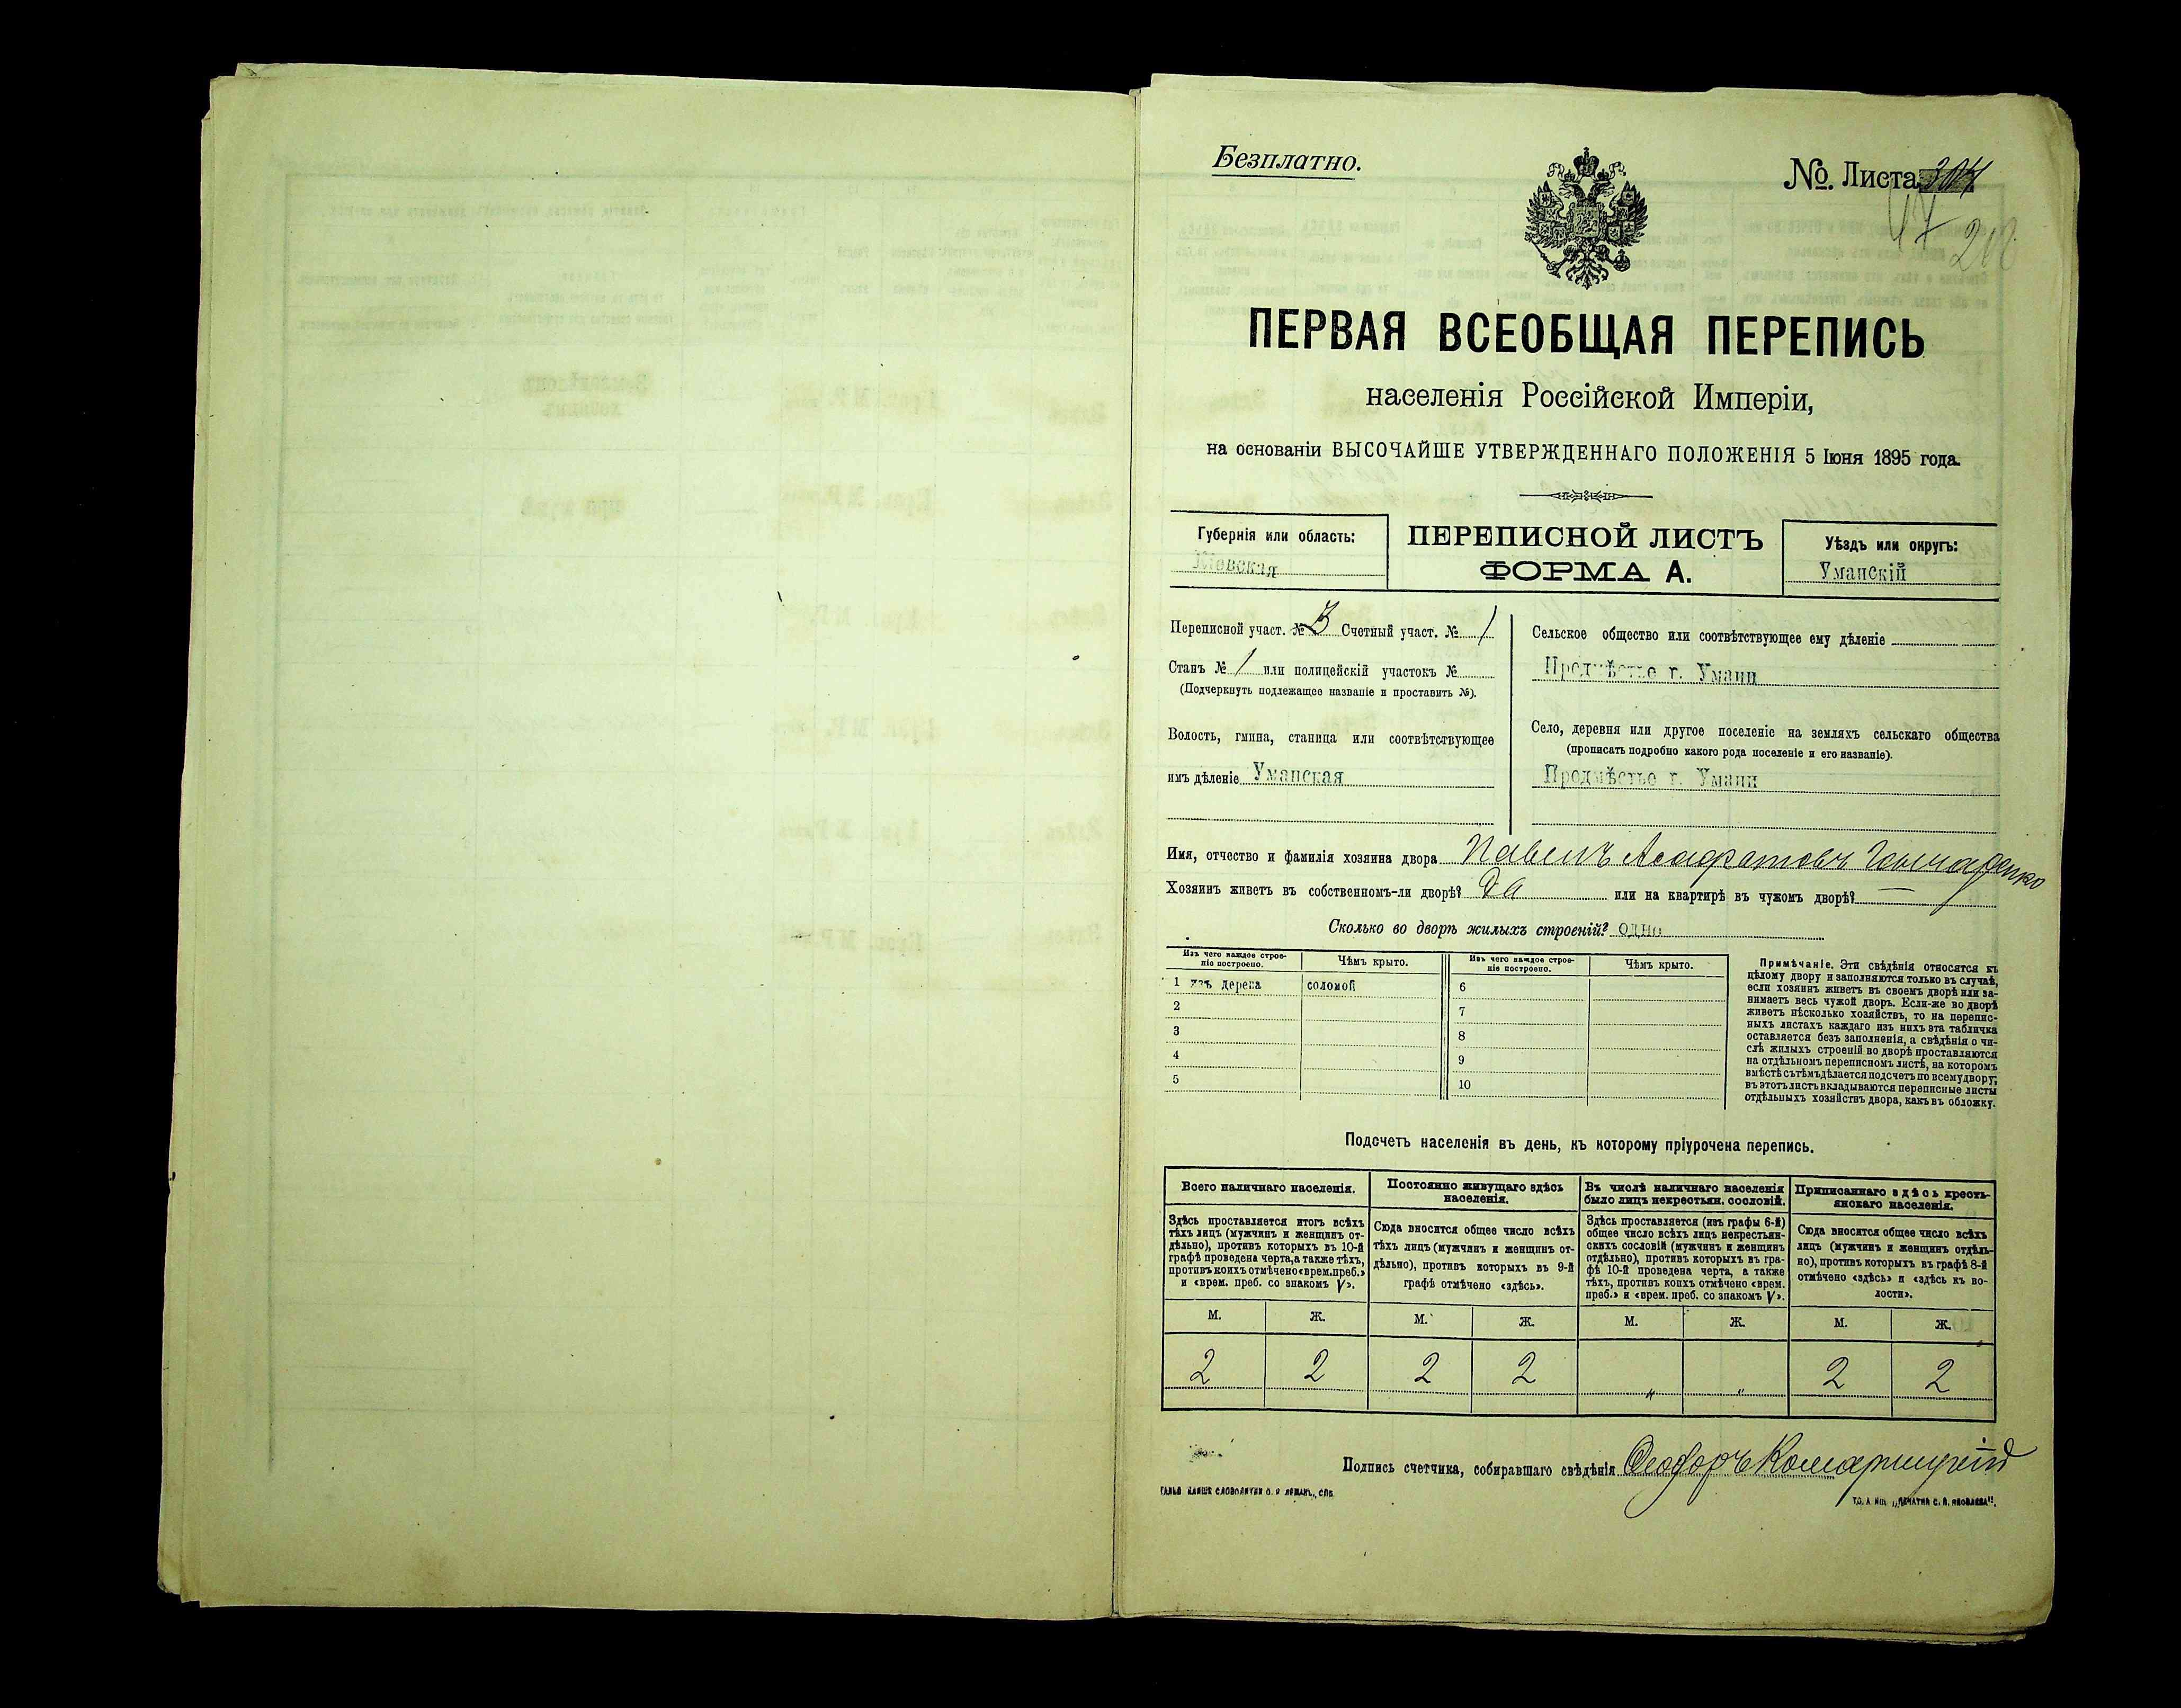 Безплатно.
№. Листа
ПЕРВАЯ ВСЕОБЩАЯ ПЕРЕПИСЬ
населенія Россійской Имперіи,
на основаніи ВЫСОЧАЙШЕ УТВЕРЖДЕННАГО ПОЛОЖЕНІЯ 5 Іюня 1895 года.
Губернія или область:
Кіевская
ПЕРЕПИСНОЙ ЛИСТЪ
ФОРМА А.
Уѣздъ или округъ:
Уманскій
Переписной участ. № 3 Счетный участ. № 1
Станъ № 1 или полицейскій участокъ №
(Подчеркнуть подлежащее названіе и проставить №).
Волость, гмина, станица или соотвѣтствующее
имъ дѣленіе Уманская
Сельское общество или соотвѣтствующее ему дѣленіе
Предмѣстье г. Умани
Село, деревня или другое поселеніе на земляхъ сельскаго общества
(прописать подробно какого рода поселеніе и его названіе).
Предмѣстье г. Умани
Имя, отчество и фамилія хозяина двора Павелъ Асафатовъ Гончаренко
Хозяинъ живетъ въ собственномъ-ли дворѣ? Да или на квартирѣ въ чужомъ дворѣ? —
Сколько во дворѣ жилыхъ строеній? одно
Изъ чего каждое строе-
ніе построено.
Чѣмъ крыто.
Изъ чего каждое строе-
ніе построено.
Чѣмъ крыто.
1 изъ дерева соломой 6
2 7
3 8
4 9
5 10
Примѣчаніе. Эти свѣдѣнія относятся къ
цѣлому двору и заполняются только въ случаѣ,
если хозяинъ живетъ въ своемъ дворѣ или за-
нимаетъ весь чужой дворъ. Если-же во дворѣ
живетъ нѣсколько хозяйствъ, то на перепис-
ныхъ листахъ каждаго изъ нихъ эта табличка
оставляется безъ заполненія, а свѣдѣнія о чи-
слѣ жилыхъ строеній во дворѣ проставляются
на отдѣльномъ переписномъ листѣ, на которомъ
вмѣстѣ съ тѣмъ дѣлается подсчетъ по всему двору;
въ этотъ листъ вкладываются переписные листы
отдѣльныхъ хозяйствъ двора, какъ въ обложку.
Подсчетъ населенія въ день, къ которому пріурочена перепись.
Всего наличнаго населенія.
Здѣсь проставляется итогъ всѣхъ
тѣхъ лицъ (мужчинъ и женщинъ от-
дѣльно), противъ которыхъ въ 10-й
графѣ проведена черта, а также тѣхъ,
противъ коихъ отмѣчено «врем. преб.»
и «врем. преб. со знакомъ V».
Постоянно живущаго здѣсь
населенія.
Сюда вносится общее число всѣхъ
тѣхъ лицъ (мужчинъ и женщинъ от-
дѣльно), противъ которыхъ въ 9-й
графѣ отмѣчено «здѣсь».
Въ числѣ наличнаго населенія
было лицъ некрестьян. сословій.
Здѣсь проставляется (изъ графы 6-й)
общее число всѣхъ лицъ некрестьян-
скихъ сословій (мужчинъ и женщинъ
отдѣльно), противъ которыхъ въ гра-
фѣ 10-й проведена черта, а также
тѣхъ, противъ коихъ отмѣчено «врем.
преб.» и «врем. преб. со знакомъ V».
Приписаннаго здѣсь кресть-
янскаго населенія.
Сюда вносится общее число всѣхъ
лицъ (мужчинъ и женщинъ отдѣль-
но), противъ которыхъ въ графѣ 8-й
отмѣчено «здѣсь» и «здѣсь къ во-
лости».
М. Ж. М. Ж. М. Ж. М. Ж.
2 2 2 2 „ „ 2 2
Подпись счетчика, собиравшаго свѣдѣнія Ѳеодоръ Комарницкій